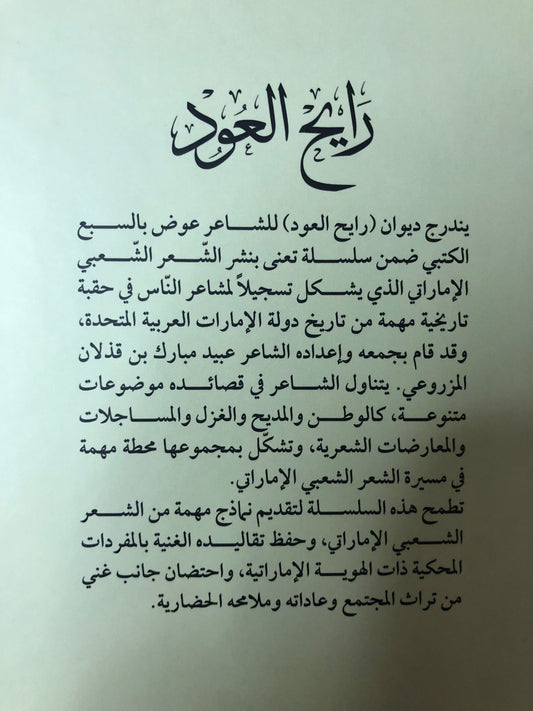 رَايحْ العُود
يندرج ديوان (رايح العود) للشاعر عوض بالسبع
الكتبي ضمن سلسلة تعنى بنشر الشّعر الشّعبي
الإماراتي الذي يشكل تسجيلاً لمشاعر النّاس في حقبة
تاريخية مهمة من تاريخ دولة الإمارات العربية المتحدة،
وقد قام بجمعه وإعداده الشاعر عبيد مبارك بن قذلان
المزروعي. يتناول الشاعر في قصائده موضوعات
متنوعة، كالوطن والمديح والغزل والمساجلات
والمعارضات الشعرية، وتشكّل بمجموعها محطة مهمة
في مسيرة الشعر الشعبي الإماراتي.
تطمح هذه السلسلة لتقديم نماذج مهمة من الشعر
الشعبي الإماراتي، وحفظ تقاليده الغنية بالمفردات
المحكية ذات الهوية الإماراتية، واحتضان جانب غني
من تراث المجتمع وعاداته وملامحه الحضارية.